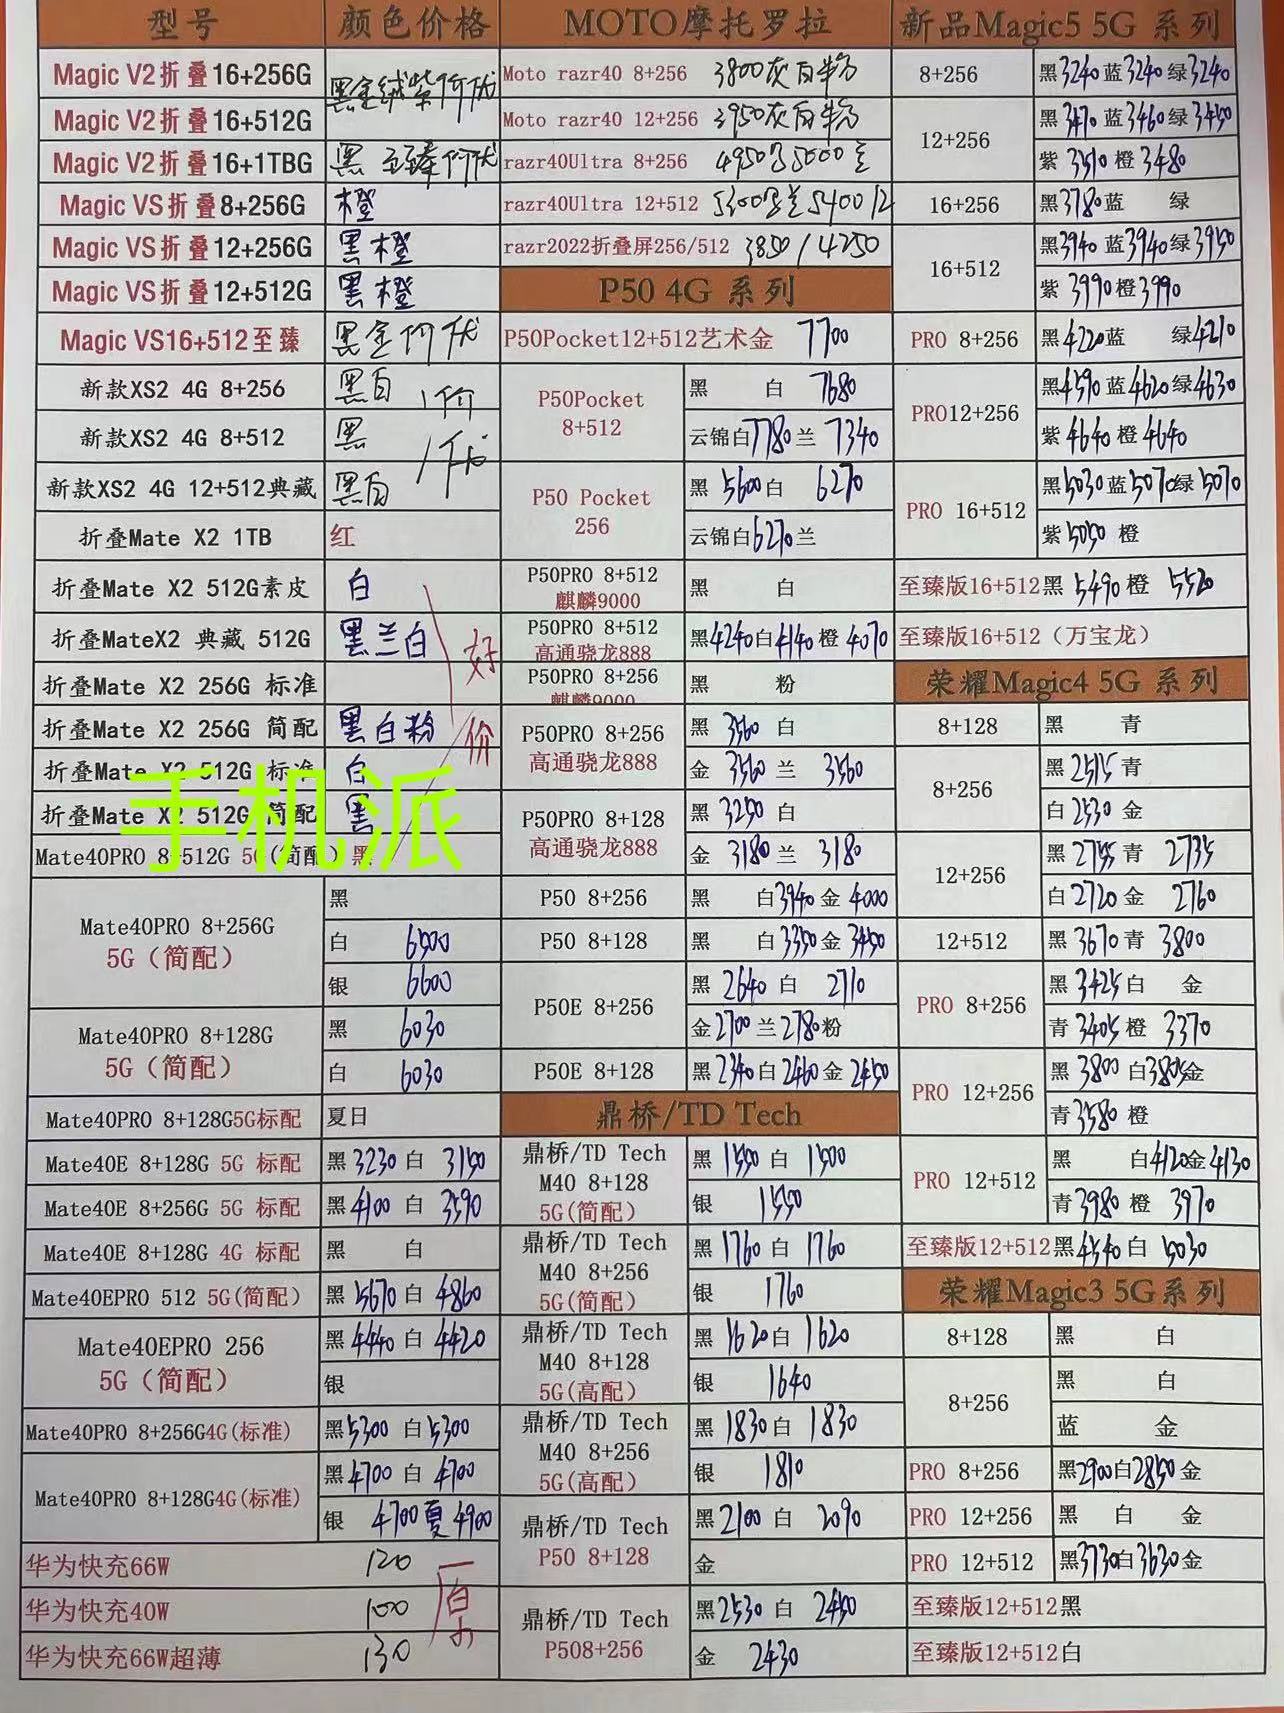 型号 颜色价格 MOTO摩托罗拉 新品Magic5 5G 系列
Magic V2折叠16+256G 黑金绒紫 Moto razr40 8+256 3800灰白 8+256 黑3240蓝3240绿3240
Magic V2折叠16+512G Moto razr40 12+256 3950灰白 12+256 黑3470蓝3460绿3450
Magic V2折叠16+1TBG 黑 razr40Ultra 8+256 4950 5000 紫3510橙3480
Magic VS折叠8+256G 橙 razr40Ultra 12+512 5300 5400 16+256 黑3780蓝 绿
Magic VS折叠12+256G 黑橙 razr2022折叠屏256/512 3850/4250 16+512 黑3940蓝3940绿3950
Magic VS折叠12+512G 黑橙 P50 4G 系列 紫3990橙3990
Magic VS16+512至臻 黑金 P50Pocket12+512艺术金 7700 PRO 8+256 黑4220蓝 绿4210
新款XS2 4G 8+256 黑白 P50Pocket 8+512 黑 白 7680 PRO12+256 黑4590蓝4620绿4630
新款XS2 4G 8+512 黑 云锦白7780兰 7340 紫4640橙4640
新款XS2 4G 12+512典藏 黑白 P50 Pocket 256 黑 5600白 6270 PRO 16+512 黑5030蓝5070绿5070
折叠Mate X2 1TB 红 云锦白6270兰 紫5050橙
折叠Mate X2 512G素皮 白 P50PRO 8+512 麒麟9000 黑 白 至臻版16+512黑 5490橙 5520
折叠MateX2 典藏 512G 黑兰白 好 P50PRO 8+512 高通骁龙888 黑4240白4140橙4070 至臻版16+512（万宝龙）
折叠Mate X2 256G 标准 P50PRO 8+256 麒麟9000 黑 粉 荣耀Magic4 5G 系列
折叠Mate X2 256G 简配 黑白粉 价 P50PRO 8+256 高通骁龙888 黑 3560 白 8+128 黑 青
折叠Mate X2 512G 标准 白 金 3560兰 3560 8+256 黑2515青
手机派
折叠Mate X2 512G 简配 黑 P50PRO 8+128 高通骁龙888 黑 3250 白 白2530金
Mate40PRO 8+512G 5G(简配 黑 金 3180兰 3180 12+256 黑2755青 2735
Mate40PRO 8+256G 5G（简配） 黑 P50 8+256 黑 白3940金4000 白2720金 2760
白 6500 P50 8+128 黑 白3350金3450 12+512 黑3670青 3800
银 6600 P50E 8+256 黑 2640白 2710 PRO 8+256 黑3425白 金
Mate40PRO 8+128G 5G（简配） 黑 6030 金2700兰2780粉 青3405橙 3370
白 6030 P50E 8+128 黑2340白2460金2450 PRO 12+256 黑 3800白 金
Mate40PRO 8+128G5G标配 夏日 鼎桥/TD Tech 青3580橙
Mate40E 8+128G 5G 标配 黑3230白 3150 鼎桥/TD Tech M40 8+128 5G(简配） 黑 1550白 1500 PRO 12+512 黑 白4120金4130
Mate40E 8+256G 5G 标配 黑4100白 3590 银 1550 青3980橙 3970
Mate40E 8+128G 4G 标配 黑 白 鼎桥/TD Tech M40 8+256 5G(简配） 黑1760白 1760 至臻版12+512黑4540白 5030
Mate40EPRO 512 5G(简配） 黑5670白 4860 银 1760 荣耀Magic3 5G系列
Mate40EPRO 256 5G（简配） 黑4440白4420 鼎桥/TD Tech M40 8+128 5G(高配） 黑1620白 1620 8+128 黑 白
银 银 1640 8+256 黑 白
Mate40PRO 8+256G4G(标准） 黑5300白5300 鼎桥/TD Tech M40 8+256 5G(高配） 黑1830白 1830 蓝 金
Mate40PRO 8+128G4G(标准） 黑4700白4700 银 1810 PRO 8+256 黑2900白2850金
银 4700夏4900 鼎桥/TD Tech P50 8+128 黑2100白 2090 PRO 12+256 黑 白 金
华为快充66W 120 金 PRO 12+512 黑3730白3630金
华为快充40W 100 鼎桥/TD Tech P508+256 黑2530白 2450 至臻版12+512黑
华为快充66W超薄 130 金 2430 至臻版12+512白